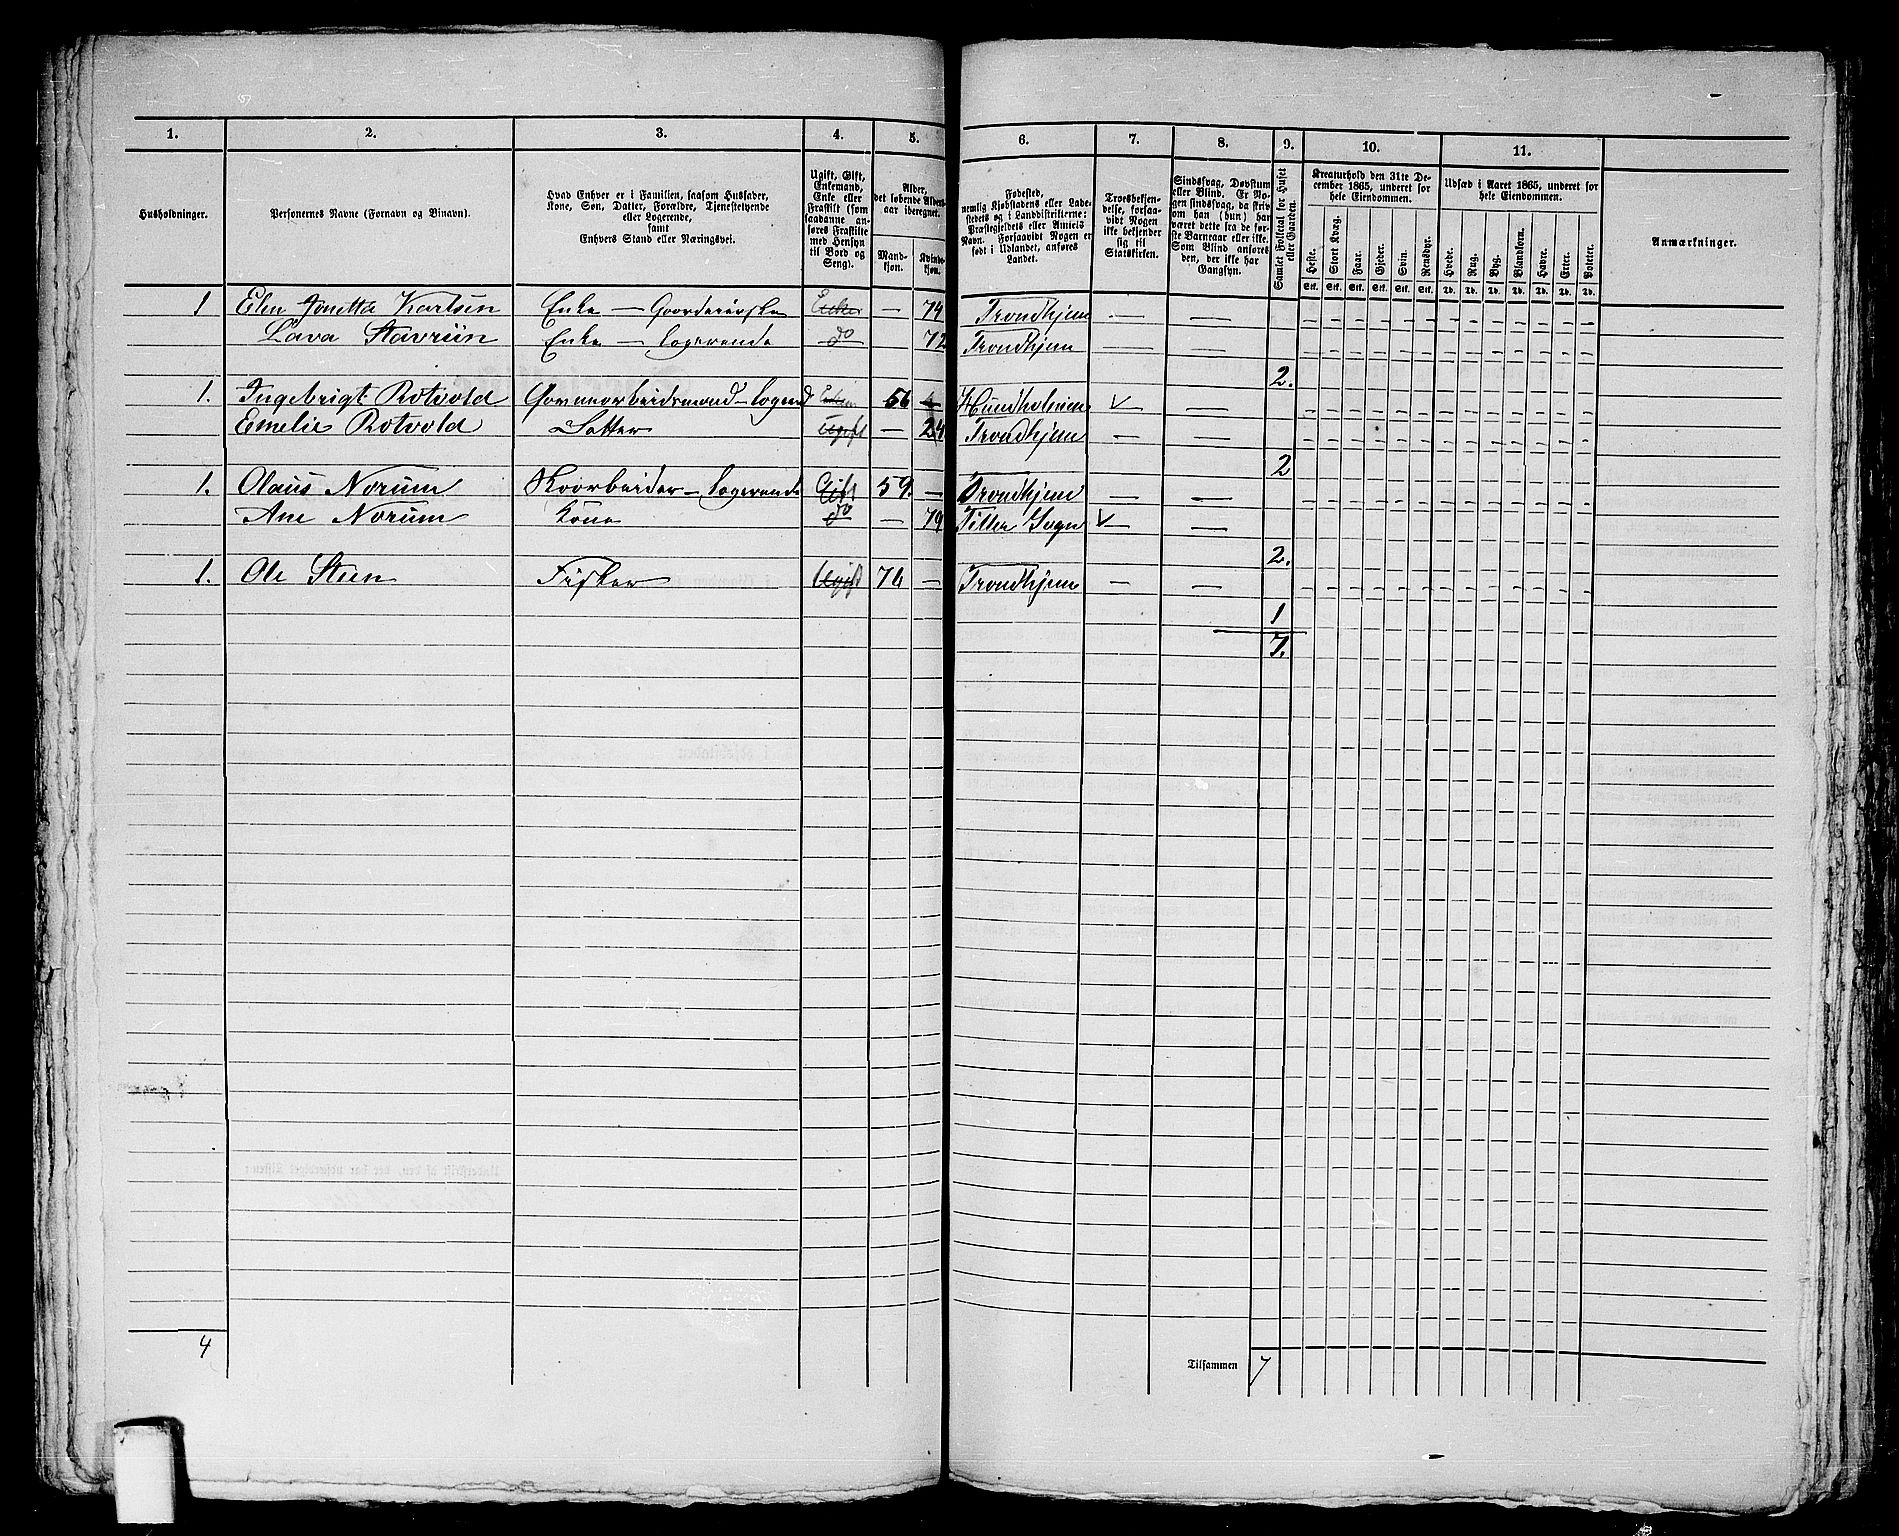 1. 2. 3. 4. 5. 6. 7. 8. 9. 10. 11.
Husholdninger.
Personernes Navne (Fornavn og Binavn).
Hvad Enhver er i Familien, saasom Husfader,
Kone, Søn, Datter, Forældre, Tjenestetyende
eller Logerende,
samt
Enhvers Stand eller Næringsvei.
Ugift, Gift,
Enkemand,
Enke eller
Fraskilt (som
saadanne an-
føres Fraskilte
med Hensyn
til Bord og
Seng).
Alder,
det løbende Alders-
aar iberegnet.
Mand-
kjøn.
Kvinde-
kjøn.
Fødested,
nemlig Kjøbstadens eller Lade-
stedets og i Landdistrikterne:
Præstegjeldets eller Annexets
Navn. Forsaavidt Nogen er
født i Udlandet, anføres
Landet.
Troesbekjen-
delse, forsaa-
vidt Nogen
ikke bekjender
sig til
Statskirken.
Sindssvag, Døvstum
eller Blind. Er No-
gen sindssvag, da skriv
om han (hun) har
været dette fra de før-
ste Barneaar eller ikke.
Som Blind anføres
den, der ikke har
Gangsyn.
Samlet Folketal for Huset
eller Gaarden.
Kreaturhold den 31te De-
cember 1865, underet for
hele Eiendommen.
Heste. Stort Kvæg. Faar. Gjeder. Svin. Rensdyr.
Stk. Stk. Stk. Stk. Stk. Stk.
Udsæd i Aaret 1865, underet for
hele Eiendommen.
Hvede. Rug. Byg. Blandkorn. Havre. Erter. Poteter.
Td. Td. Td. Td. Td. Td. Td.
Anmærkninger.
1 Elen Jonetta Karlsen Enke — Gaardeierske Enke — 74 Trondhjem — —
Lava Stavrün Enke — Logerende do — 72 Trondhjem — —
2.
1. Ingebrigt Rotvold Logend 56 Hundholmen —
Emelie Rotvold Datter Ugift — 24 Trondhjem — —
2
1. Olaus Norum — Logerende Gift 59. — Trondhjem — —
Ane Norum Kone do — 79 Tiller Sogn — —
2.
1. Ole Steen Fisker Ugift 74 — Trondhjem — —
1
7.
4
Tilsammen 7